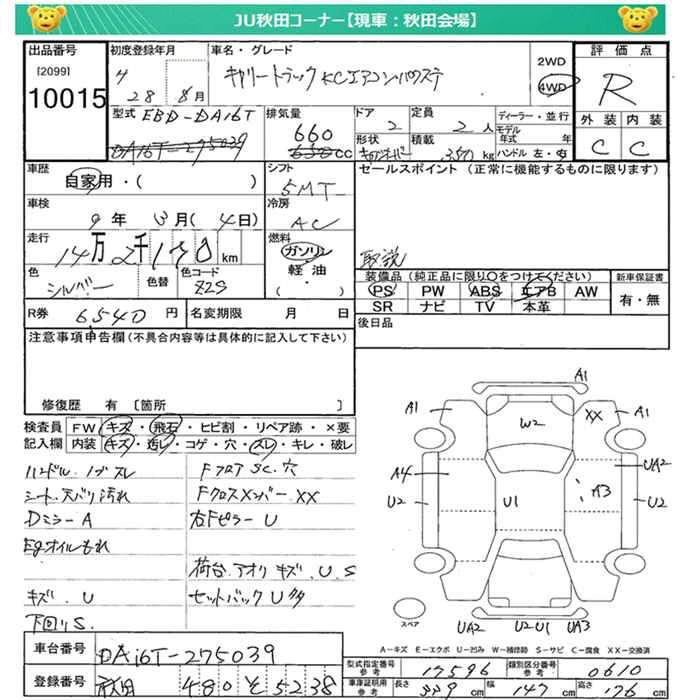 JU秋田コーナー【現車：秋田会場】
出品番号
[2099]
10015
初度登録年月
4
28 年 8月
車名・グレード
キャリートラック KCエアコン・パワステ
2WD
4WD
評価点
R
外装 内装
C C
型式 EBD-DA16T
DA16T-275039
排気量
660
650cc
ドア
2
定員
2人
形状
積載
350kg
ディーラー・並行
モデル年式 年
ハンドル 左・右
車歴
自家用・( )
シフト
5MT
セールスポイント (正常に機能するものに限ります)
取説
車検
9年 3月 (4日)
冷房
AC
走行
14万2千170km
燃料
ガソリン
軽油
( )
色
シルバー
色替
色コード
Z2S
装備品(純正品に限り○をつけてください)
PS PW ABS エアB AW
SR ナビ TV 本革
新車保証書
有・無
R券 6,540円
名変期限 月 日
後日品
注意事項申告欄(不具合内容等は具体的に記入して下さい)
修復歴 有 〔箇所 〕
検査員記入欄
FW キズ・飛石・ヒビ割・リペア跡・×要
内装 キズ・汚レ・コゲ・穴・スレ・キレ・破レ
ハンドル.ノブスレ
シート.天バリ汚れ
Dミラー A
Egオイルもれ
キズ.U
下回りS.
Fフロア SC.穴
Fクロスメンバー XX
右Fピラー U
荷台.アオリ キズ.U.S
セットバックUタ
A1
A1 XX A1
W2
A4 UA2
U2 U1 A3 U2
スペア
UA2 U2-U1 UA3
A-キズ E-エクボ U-凹み W-補修跡 S-サビ C-腐食 XX-交換済
車台番号 DA16T-275039
登録番号 秋田 480 そ 5238
型式指定番号 参考 17596
類別区分番号 参考 0610
車庫証明用 参考 長さ 339cm 幅 147cm 高さ 176cm